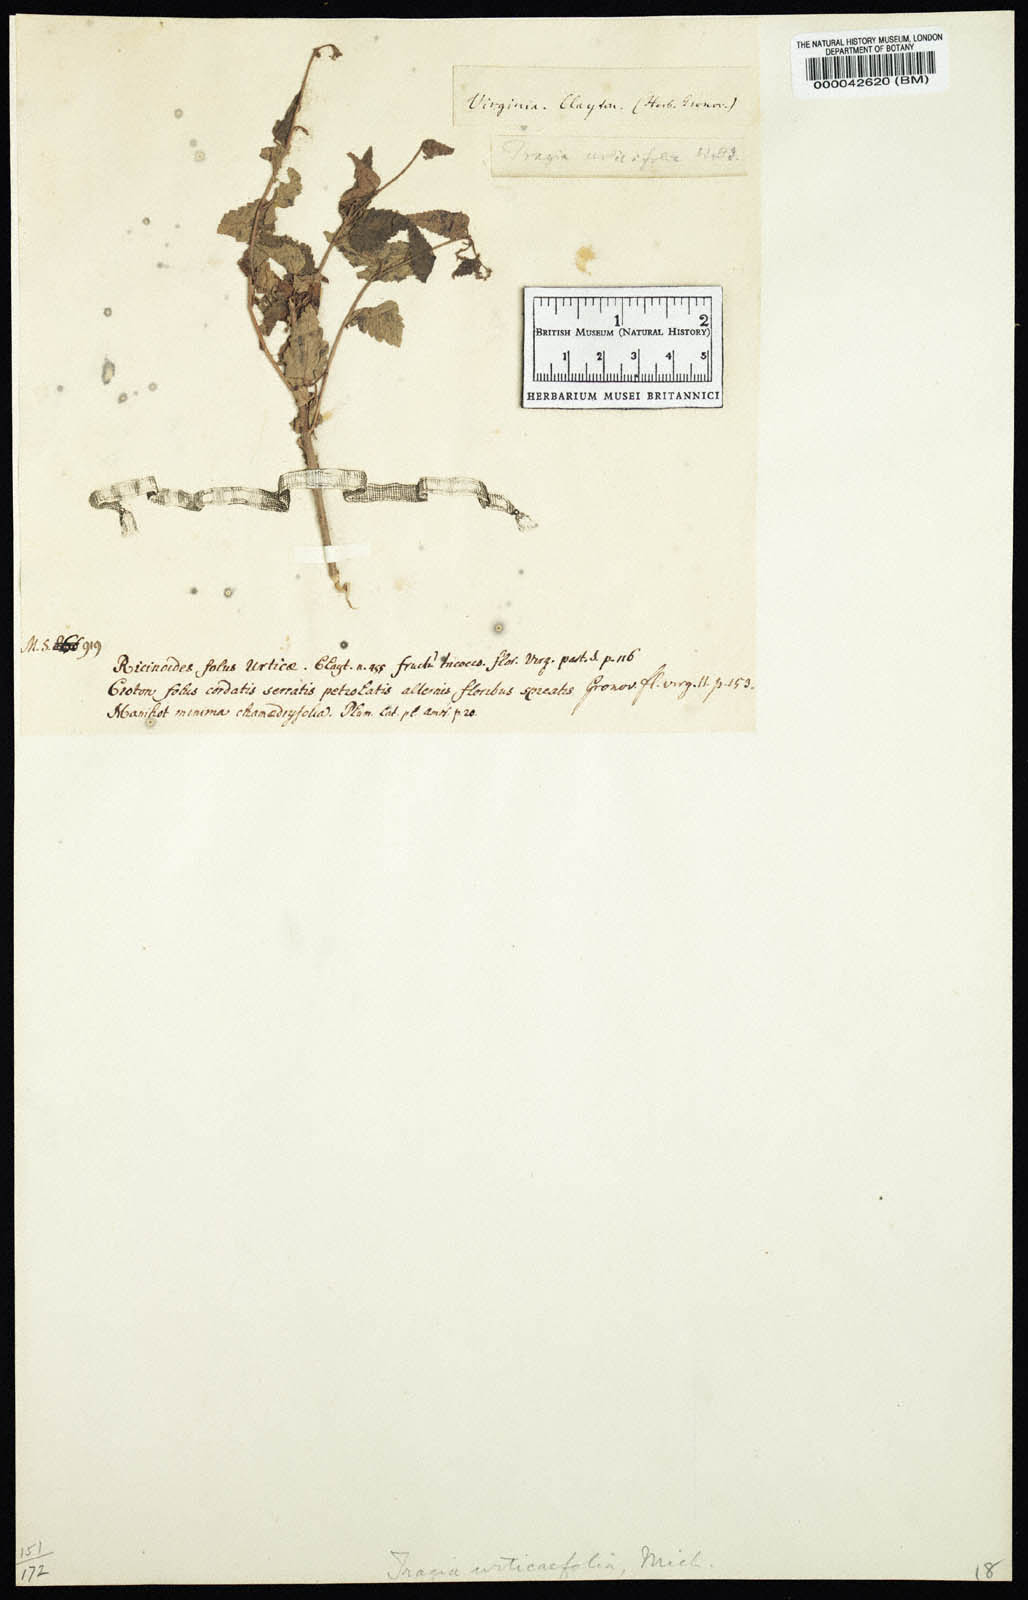 THE NATURAL HISTORY MUSEUM, LONDON
DEPARTMENT OF BOTANY
000042620 (BM)
Virginia. Clayton. (Herb. Gronov.)
Tragia urticifolia
1 2
BRITISH MUSEUM (NATURAL HISTORY)
1 2 3 4 5
HERBARIUM MUSEI BRITANNICI
M.S. 919
Ricinoides foliis Urticæ. Clayt. n. 455 fructu tricocco. flor. Virg. part. 1. p. 116
Croton foliis cordatis serratis petiolatis alternis floribus spicatis Gronov. fl. virg. II. p. 153.
Manihot minima chamædryfolia. Plum. Cat. pl. amer. p. 20.
151
172
Tragia urticaefolia, Mich.
18